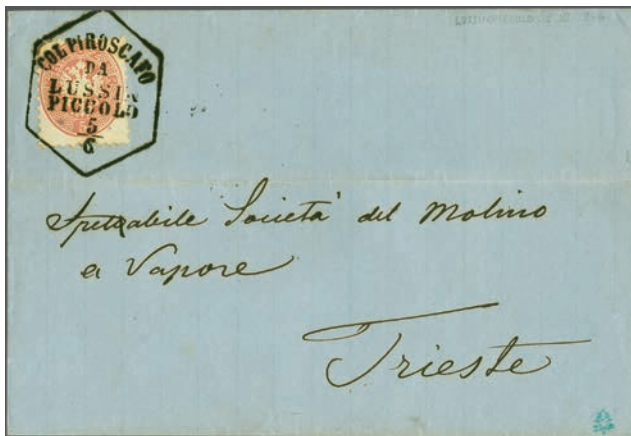 COL PIROSCAFO
DA
LUSSIN
PICCOLO
5
6
Spettabile Società del Molino
a Vapore
Trieste